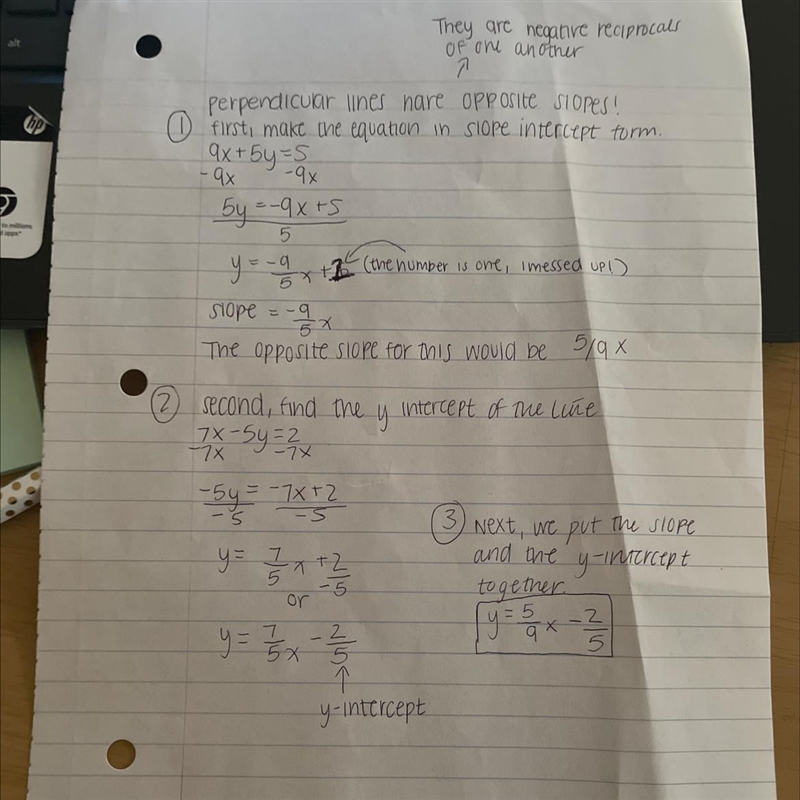 alt
hp
They are negative reciprocals
of one another
perpendicular lines have opposite slopes!
① first, make the equation in slope intercept form.
9x + 5y = 5
-9x -9x
5y = -9x + 5
5
y = -9/5 x + 1 (the number is one, I messed up!)
slope = -9/5 x
The opposite slope for this would be 5/9 x
② second, find the y intercept of the line
7x - 5y = 2
-7x -7x
-5y = -7x + 2
-5 -5
y = 7/5 x + 2/-5
or
y = 7/5 x - 2/5
y-intercept
③ Next, we put the slope
and the y-intercept
together.
y = 5/9 x - 2/5